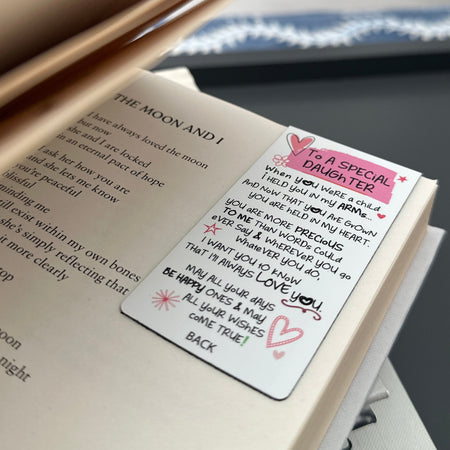 THE MOON AND I
I have always loved the moon
but now
she and I are locked
in an eternal pact of hope
I ask her how you are
and she lets me know
you're peaceful
blissful
minding me
still exist within my own bones
she's simply reflecting that
more clearly
top
moon
night
To A SPECIAL
DAUGHTER
When you were a child
I HELD YOU IN MY ARMS...
AND NOW THAT you ARE GROWN
YOU ARE HELD IN MY HEART.
YOU ARE MORE PRECIOUS
TO ME THAN WORDS COULD
EVER SAY & WHEREVER YOU GO
WHATEVER YOU DO,
I WANT YOU TO KNOW
THAT I'll ALWAYS LOVE you.
MAY ALL YOUR DAYS
BE HAPPY ONES & MAY
ALL YOUR WISHES
COME TRUE!
BACK